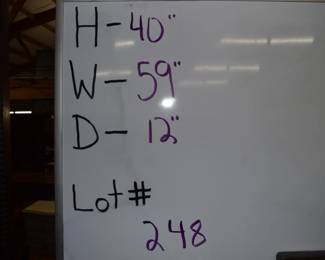 H-40"
W-59"
D-12"
Lot#
248